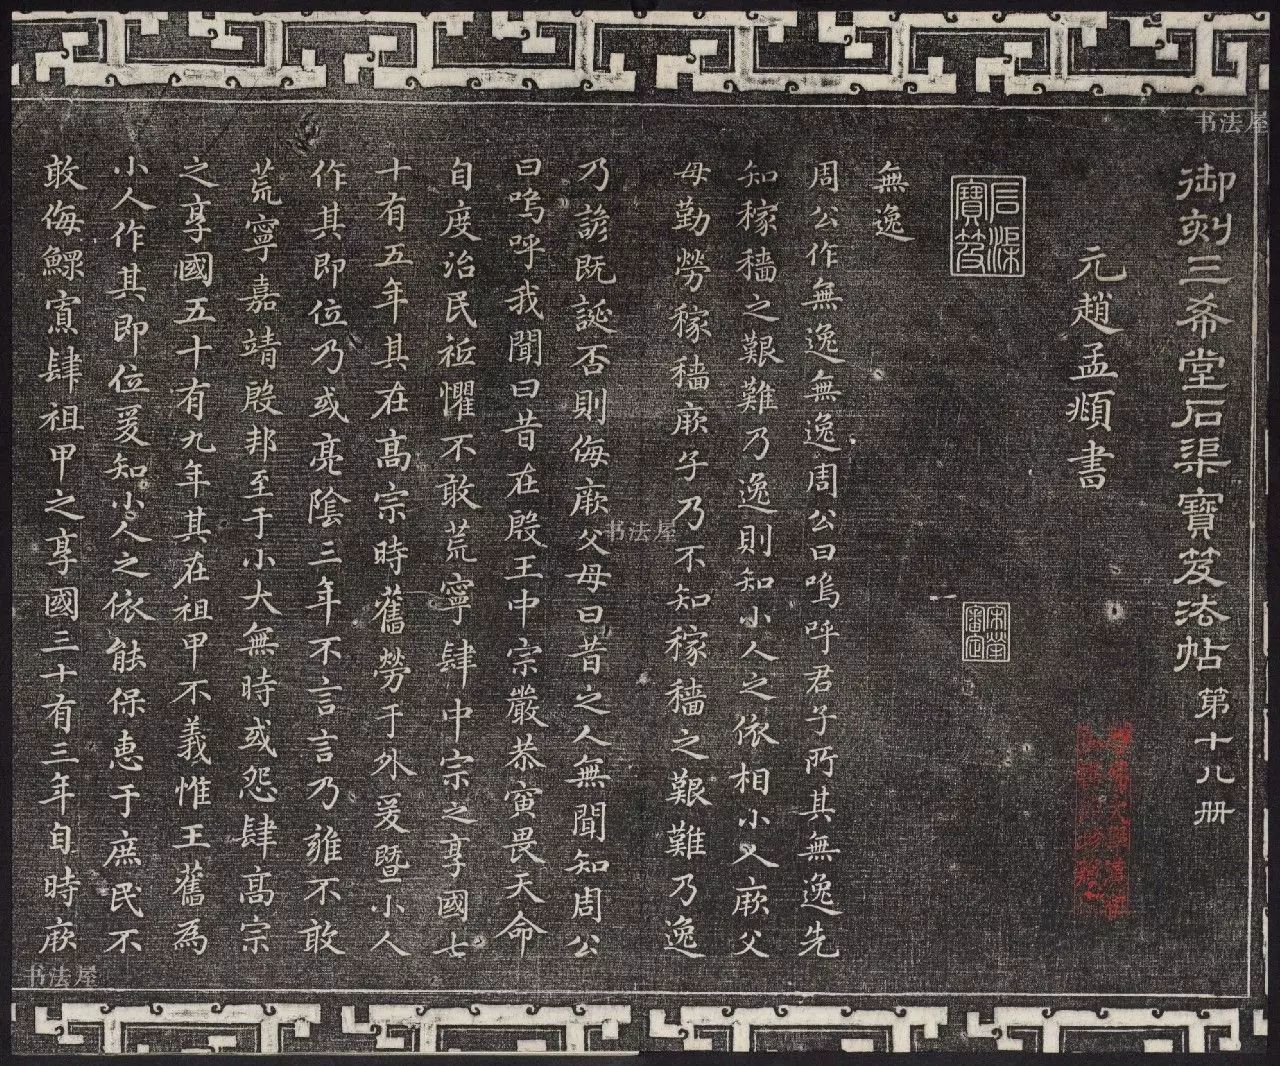 御刻三希堂石渠寶笈法帖第十八册
元趙孟頫書
石渠寶笈
無逸
周公作無逸無逸周公曰嗚呼君子所其無逸先
知稼穡之艱難乃逸則知小人之依相小人厥父
母勤勞稼穡厥子乃不知稼穡之艱難乃逸
乃諺既誕否則侮厥父母曰昔之人無聞知周公
曰嗚呼我聞曰昔在殷王中宗嚴恭寅畏天命
自度治民祗懼不敢荒寧肆中宗之享國七
十有五年其在高宗時舊勞于外爰暨小人
作其即位乃或亮陰三年不言言乃雍不敢
荒寧嘉靖殷邦至于小大無時或怨肆高宗
之享國五十有九年其在祖甲不義惟王舊為
小人作其即位爰知小人之依能保惠于庶民不
敢侮鰥寡肆祖甲之享國三十有三年自時厥
书法屋
书法屋
书法屋